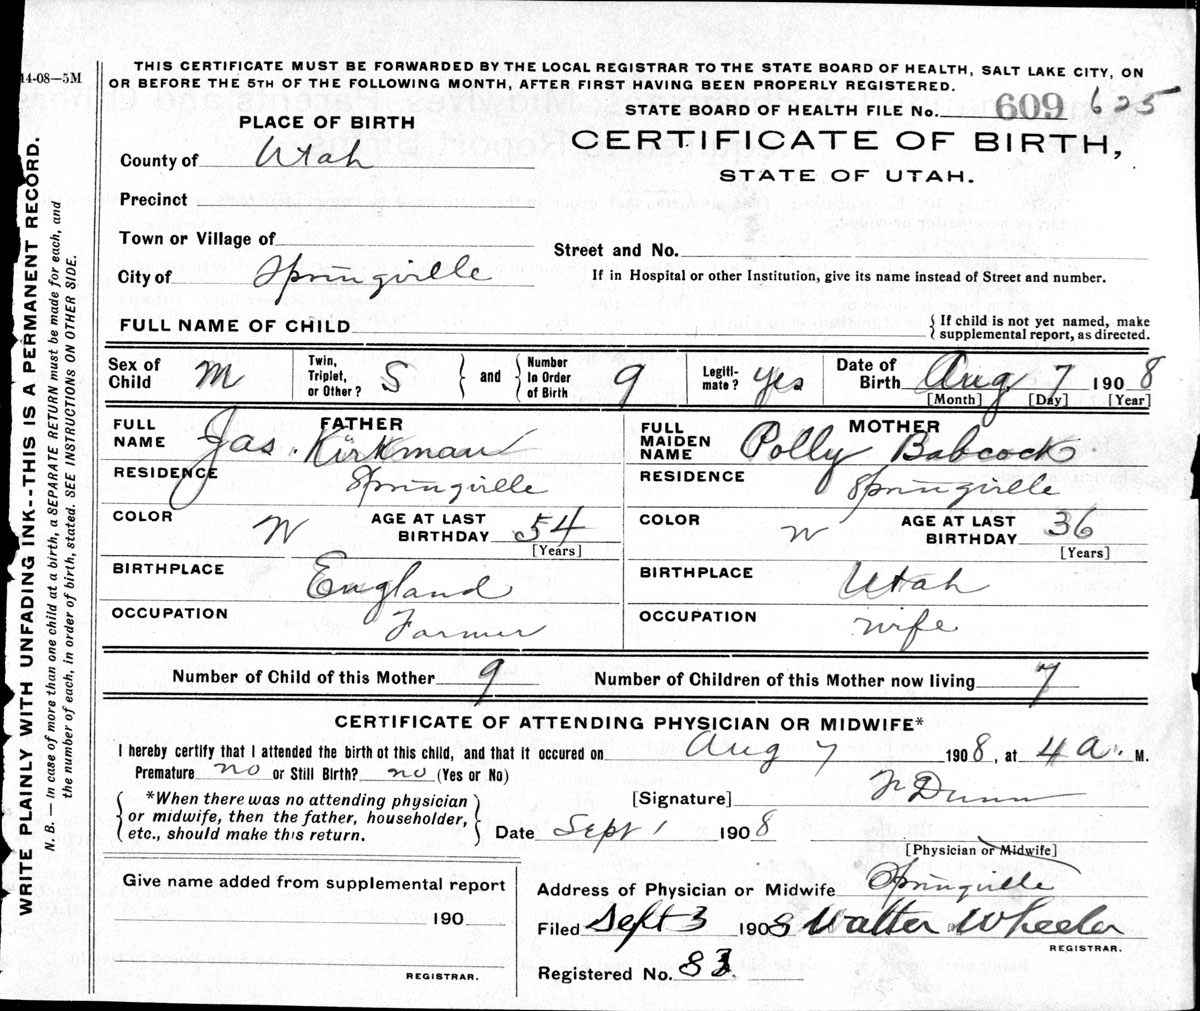 14-08—5M
THIS CERTIFICATE MUST BE FORWARDED BY THE LOCAL REGISTRAR TO THE STATE BOARD OF HEALTH, SALT LAKE CITY, ON
OR BEFORE THE 5TH OF THE FOLLOWING MONTH, AFTER FIRST HAVING BEEN PROPERLY REGISTERED.
STATE BOARD OF HEALTH FILE No. 609 625
PLACE OF BIRTH
CERTIFICATE OF BIRTH,
STATE OF UTAH.
County of Utah
Precinct
Town or Village of
Street and No.
City of Springville
If in Hospital or other Institution, give its name instead of Street and number.
FULL NAME OF CHILD
{ If child is not yet named, make
supplemental report, as directed.
Sex of Child M Twin, Triplet, or Other? S } and { Number In Order of Birth 9 Legiti- mate? yes Date of Birth Aug 7 1908
[Month] [Day] [Year]
FATHER
FULL NAME Jas. Kirkman
RESIDENCE Springville
COLOR W AGE AT LAST BIRTHDAY 54
[Years]
BIRTHPLACE England
OCCUPATION Farmer
MOTHER
FULL MAIDEN NAME Polly Babcock
RESIDENCE Springville
COLOR W AGE AT LAST BIRTHDAY 36
[Years]
BIRTHPLACE Utah
OCCUPATION wife
Number of Child of this Mother 9 Number of Children of this Mother now living 7
CERTIFICATE OF ATTENDING PHYSICIAN OR MIDWIFE*
I hereby certify that I attended the birth of this child, and that it occured on Aug 7 1908, at 4 a. M.
Premature no or Still Birth? no (Yes or No)
{ *When there was no attending physician
or midwife, then the father, householder,
etc., should make this return. }
[Signature] Dunn
Date Sept 1 1908
[Physician or Midwife]
Give name added from supplemental report
190
REGISTRAR.
Address of Physician or Midwife Springville
Filed Sept 3 1908 Walter Wheeler
REGISTRAR.
Registered No. 83
WRITE PLAINLY WITH UNFADING INK--THIS IS A PERMANENT RECORD.
N. B. — In case of more than one child at a birth, a SEPARATE RETURN must be made for each, and
the number of each, in order of birth, stated. SEE INSTRUCTIONS ON OTHER SIDE.